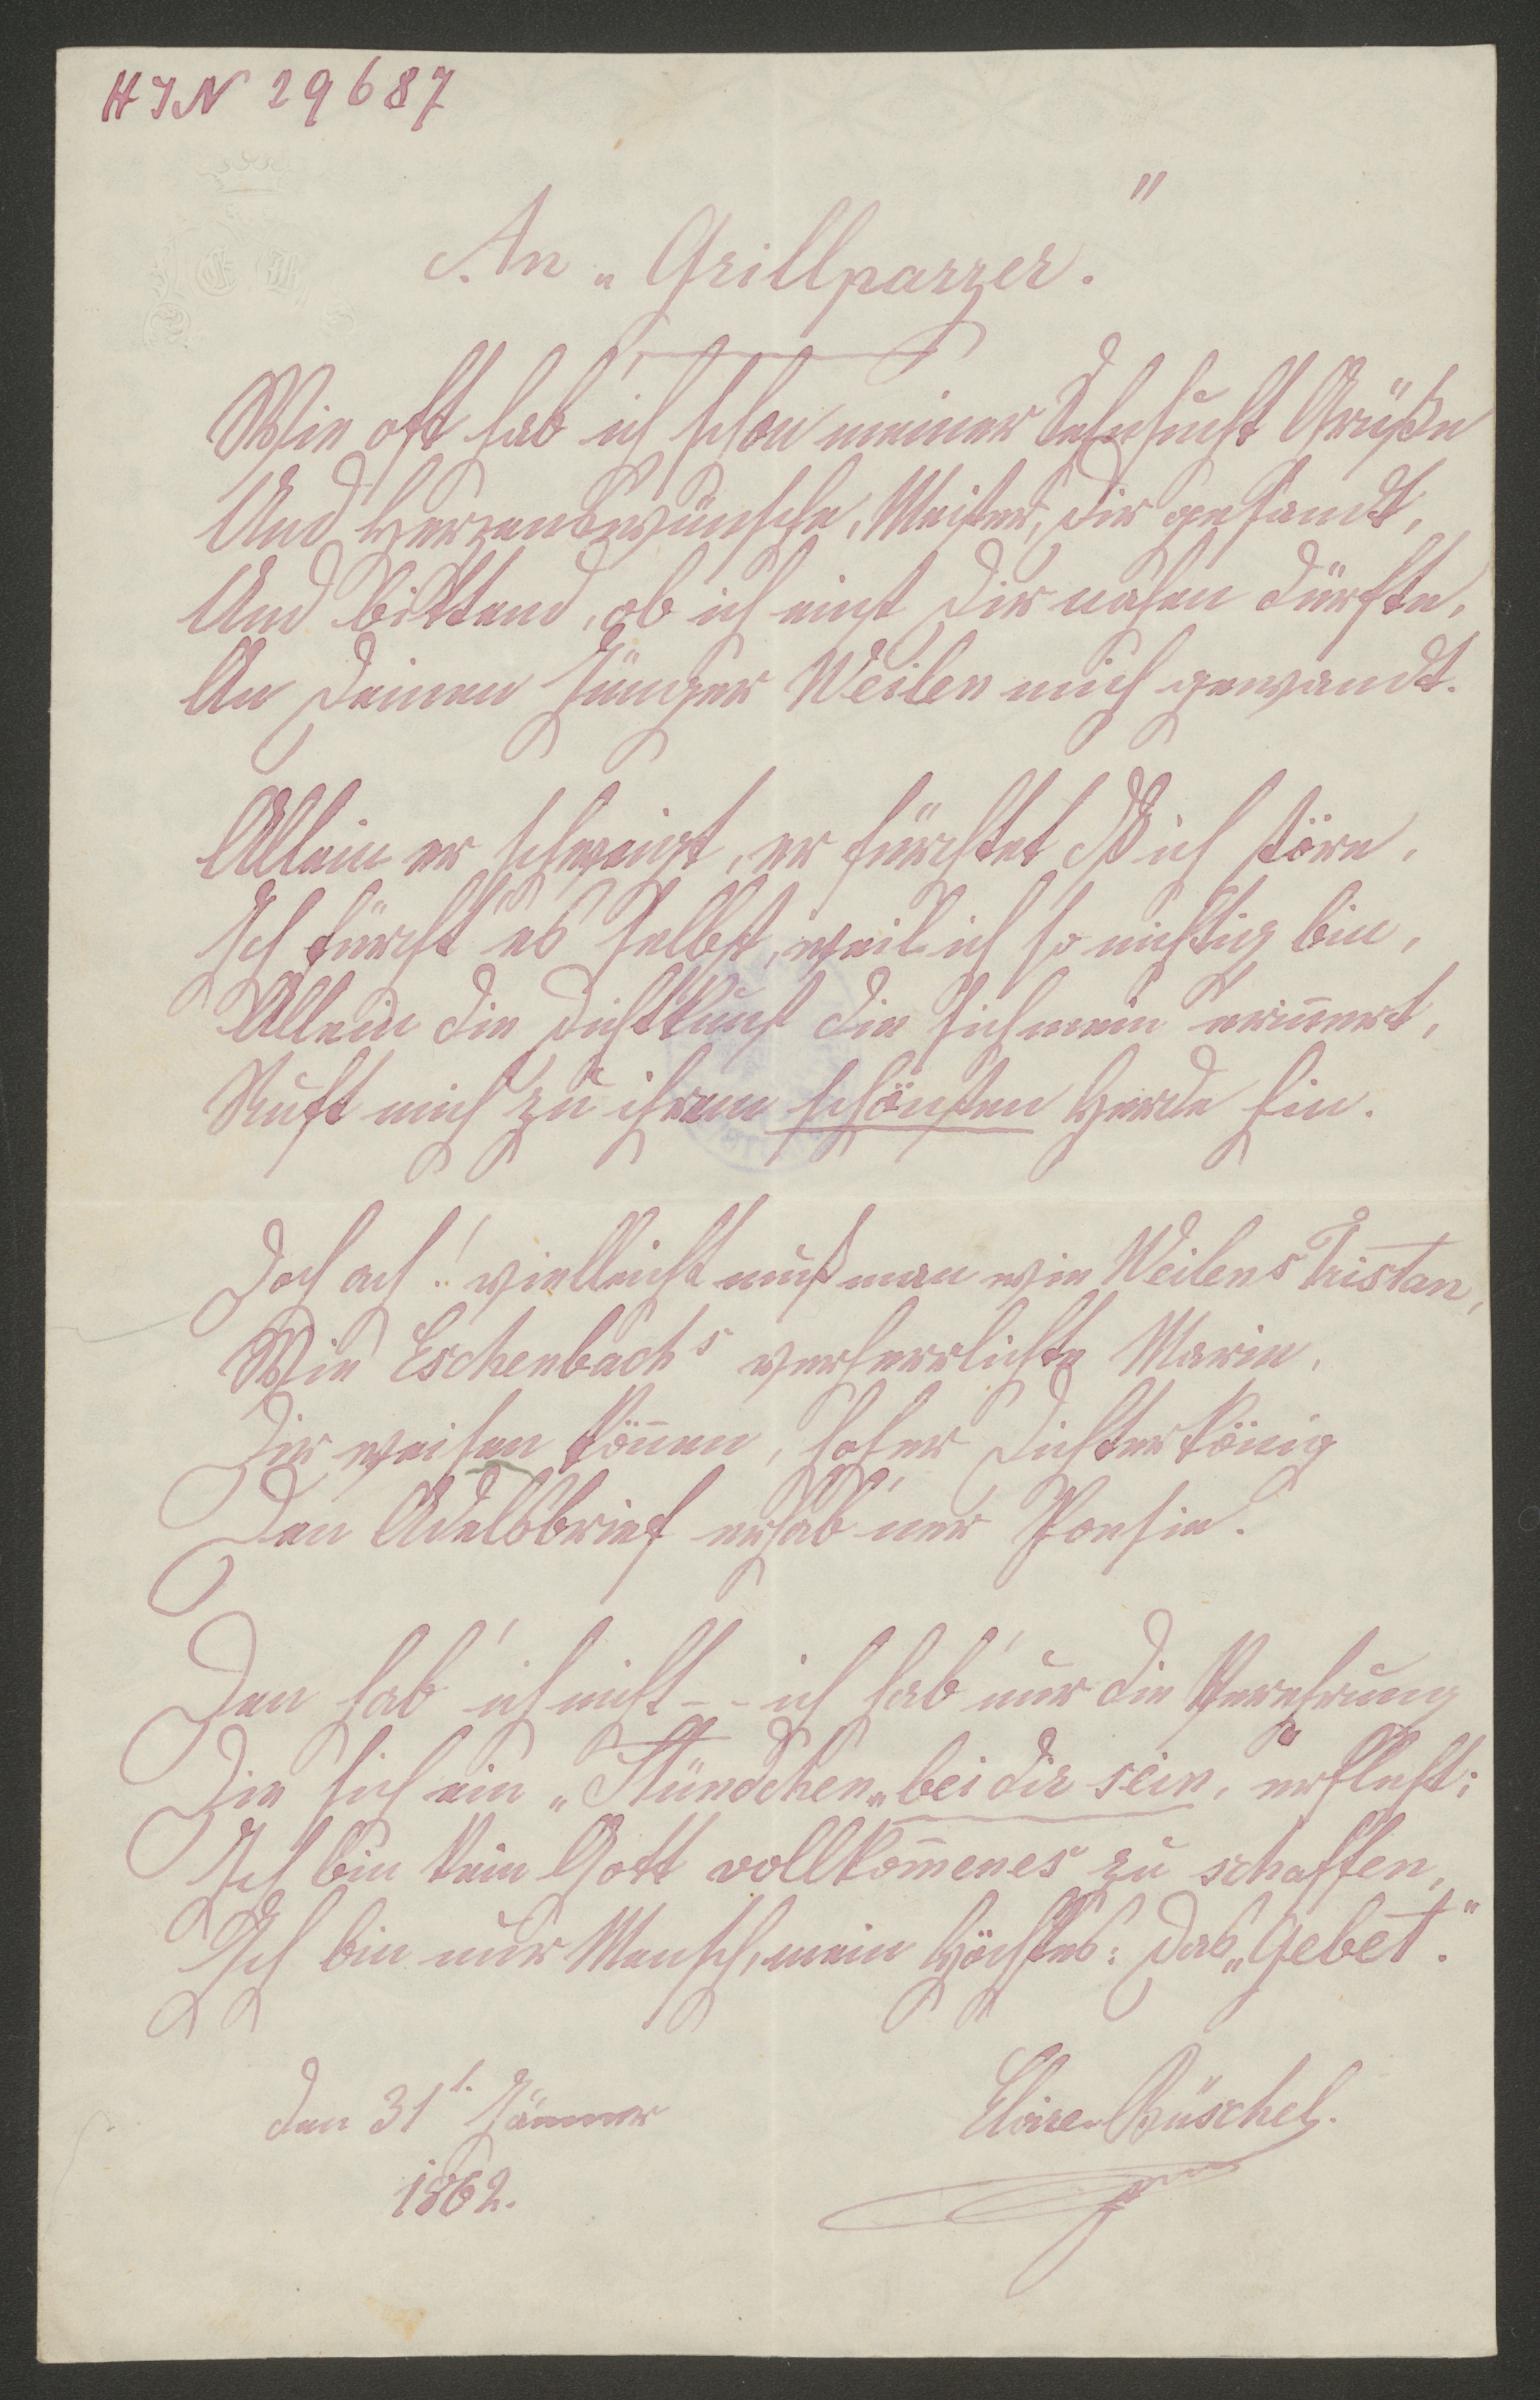 HIN 29687
An „Grillparzer."
Wie oft hab' ich schon meiner Sehnsucht Grüße
Und Herzenswünsche, Meister, dir gesandt,
Und bittend, ob ich einst dir nahen dürfte,
An deinen Jünger Weilen mich gewandt.
Allein er schweigt, er fürchtet daß ich störe,
Ich fürcht' es selbst, weil ich so nichtig bin,
Allein die Dichtkunst die sich mein erin̄ert,
Ruft mich zu ihrem schönsten Herde hin.
Doch ach! vielleicht muß man wie Weilens Tristan,
Wie Eschenbachs verherrlichte Marie,
Dir weisen kön̄en, hoher Dichterkönig
Den Adelsbrief erhab'ner Poesie.
Den hab' ich nicht -- ich hab' nur die Verehrung
Die sich ein „Stündchen„ bei dir sein, erfleht;
Ich bin kein Gott vollkom̄enes zu schaffen,
Ich bin nur Mensch, mein Höchstes: das „Gebet."
den 31t. Jänner
1862.
Büschel.